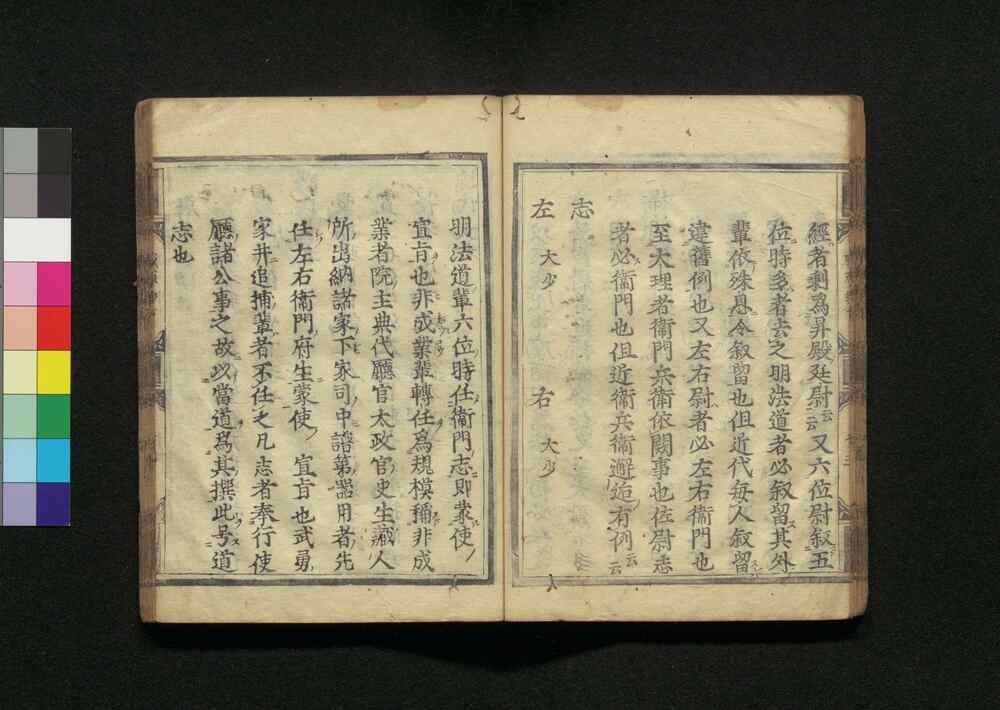 經者剰爲昇殿廷尉云云又六位尉叙五
位時多者去之明法道者必叙留其外
輩依殊恩令叙留也但近代毎人叙留
違舊例也又左右尉者必左右衛門也
至大理者衛門兵衛依闕事也佐尉志
者必衛門也但近衛兵衛邂逅有例云云
志
左 大少 右 大少
明法道輩六位時任衛門志則蒙使
宣旨也非成業輩轉任爲規模稱非成
業者院主典代廳官太政官史生藏人
所出納諸家下家司中諳第器用者先
任左右衛門府生蒙使宣旨也武勇
家并追捕輩者不任之凡志者奉行使
廳諸公事之故以當道爲其撰此号道
志也